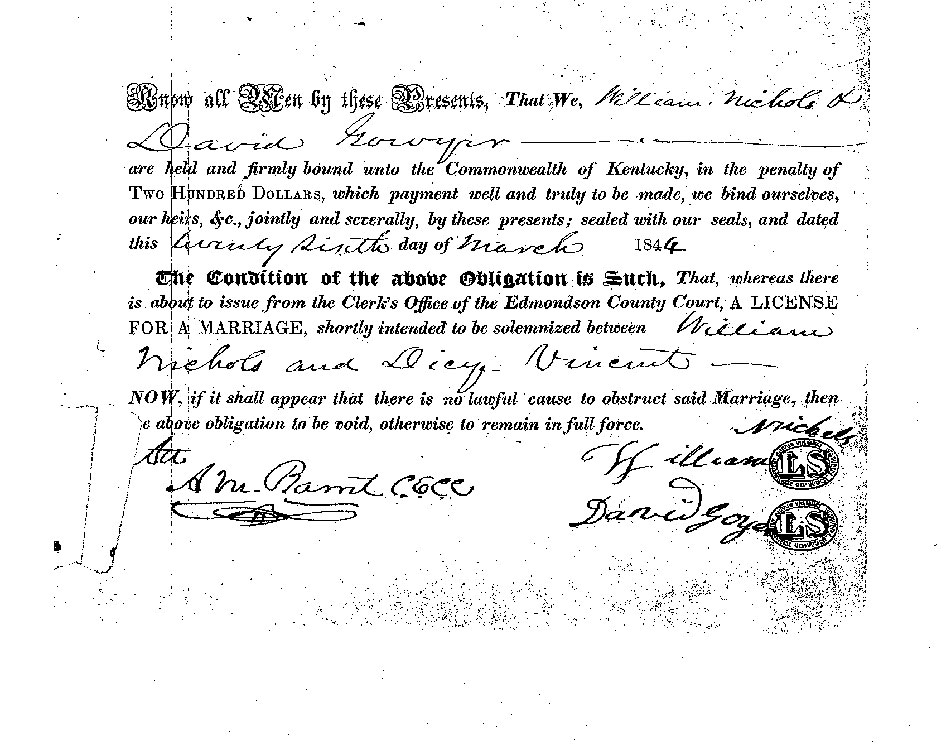 Know all Men by these Presents, That We, William Nichols &
David Gowyer
are held and firmly bound unto the Commonwealth of Kentucky, in the penalty of
TWO HUNDRED DOLLARS, which payment well and truly to be made, we bind ourselves,
our heirs, &c., jointly and severally, by these presents; sealed with our seals, and dated
this twenty sixth day of March 1844
The Condition of the above Obligation is Such, That, whereas there
is about to issue from the Clerk's Office of the Edmondson County Court, A LICENSE
FOR A MARRIAGE, shortly intended to be solemnized between William
Nichols and Dicy Vincent
NOW, if it shall appear that there is no lawful cause to obstruct said Marriage, then
e above obligation to be void, otherwise to remain in full force.
Nichols
Att William LS
A M. CECC
David Goye LS